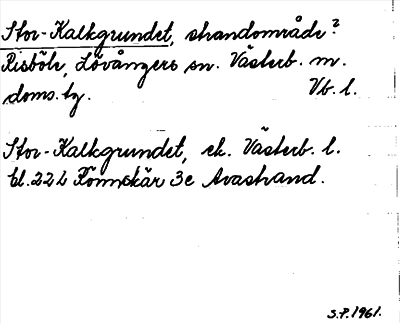 Stor-Kalkgrundet, strandområde?
Risböle, Lövångers sn. Västerb. m.
doms. tg. Vb. l.
Stor-Kalkgrundet, ek. Västerb. l.
bl. 22 L Rönnskär 3c Avastrand.
S.P. 1961.